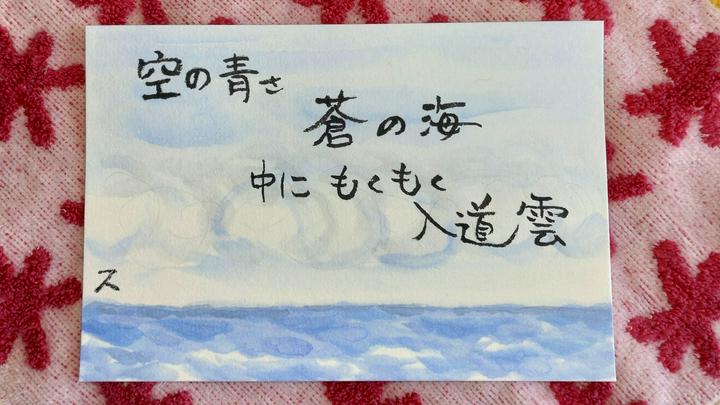 空の青さ
蒼の海
中にもくもく
入道雲
ス